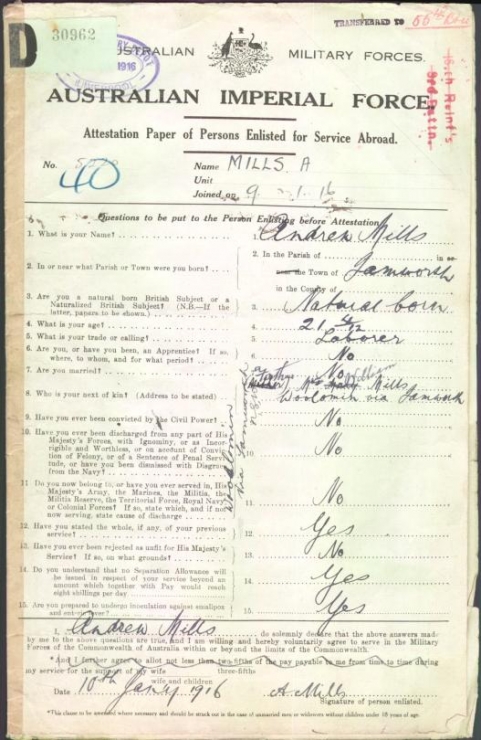 D
30962
TRANSFERRED TO
1916
AUSTRALIAN MILITARY FORCES.
AUSTRALIAN IMPERIAL FORCE.
Reinf's
Attestation Paper of Persons Enlisted for Service Abroad.
No.
40
Name MILLS A
Unit
Joined on 9 1 16
Questions to be put to the Person Enlisting before Attestation.
1. What is your Name? Andrew Mills
2. In or near what Parish or Town were you born? 2. In the Parish of in or
near the Town of Tamworth
in the County of
3. Are you a natural born British Subject or a
Naturalized British Subject? (N.B.—If the
letter, papers to be shown.) 3. Natural born
4. What is your age? 4. 21
5. What is your trade or calling? 5. Laborer
6. Are you, or have you been, an Apprentice? If so,
where, to whom, and for what period? 6. No
7. Are you married? 7. No
8. Who is your next of kin? (Address to be stated) William
Mills
Woolomin via Tamworth
Woolomin
via Tamworth
N.S.W
9. Have you ever been convicted by the Civil Power? 9. No
10. Have you ever been discharged from any part of His
Majesty's Forces, with Ignominy, or as Incor-
rigible and Worthless, or on account of Convict-
ion of Felony, or of a Sentence of Penal Servi-
tude, or have you been dismissed with Disgrace
from the Navy? 10 No
11 Do you now belong to, or have you ever served in, His
Majesty's Army, the Marines, the Militia, the
Militia Reserve, the Territorial Force, Royal Navy
or Colonial Forces? If so, state which, and if not
now serving, state cause of discharge 11. No
12. Have you stated the whole, if any, of your previous
service? 12. Yes
13. Have you ever been rejected as unfit for His Majesty's
Service? If so, on what grounds? 13. No
14. Do you understand that no Separation Allowance will
be issued in respect of your service beyond an
amount which together with Pay would reach
eight shillings per day 14. Yes
15. Are you prepared to undergo inoculation against smallpox
and enteric fever? 15. Yes
I, Andrew Mills do solemnly declare that the above answers made
by me to the above questions are true, and I am willing and hereby voluntarily agree to serve in the Military
Forces of the Commonwealth of Australia within or beyond the limits of the Commonwealth.
*And I further agree to allot not less than two-fifths of the pay payable to me from time to time during
three-fifths
my service for the support of my wife
wife and children.
Date 10th Jany 1916 A. Mills
Signature of person enlisted.
*This clause to be amended where necessary and should be struck out in the case of unmarried men or widowers without children under 18 years of age.